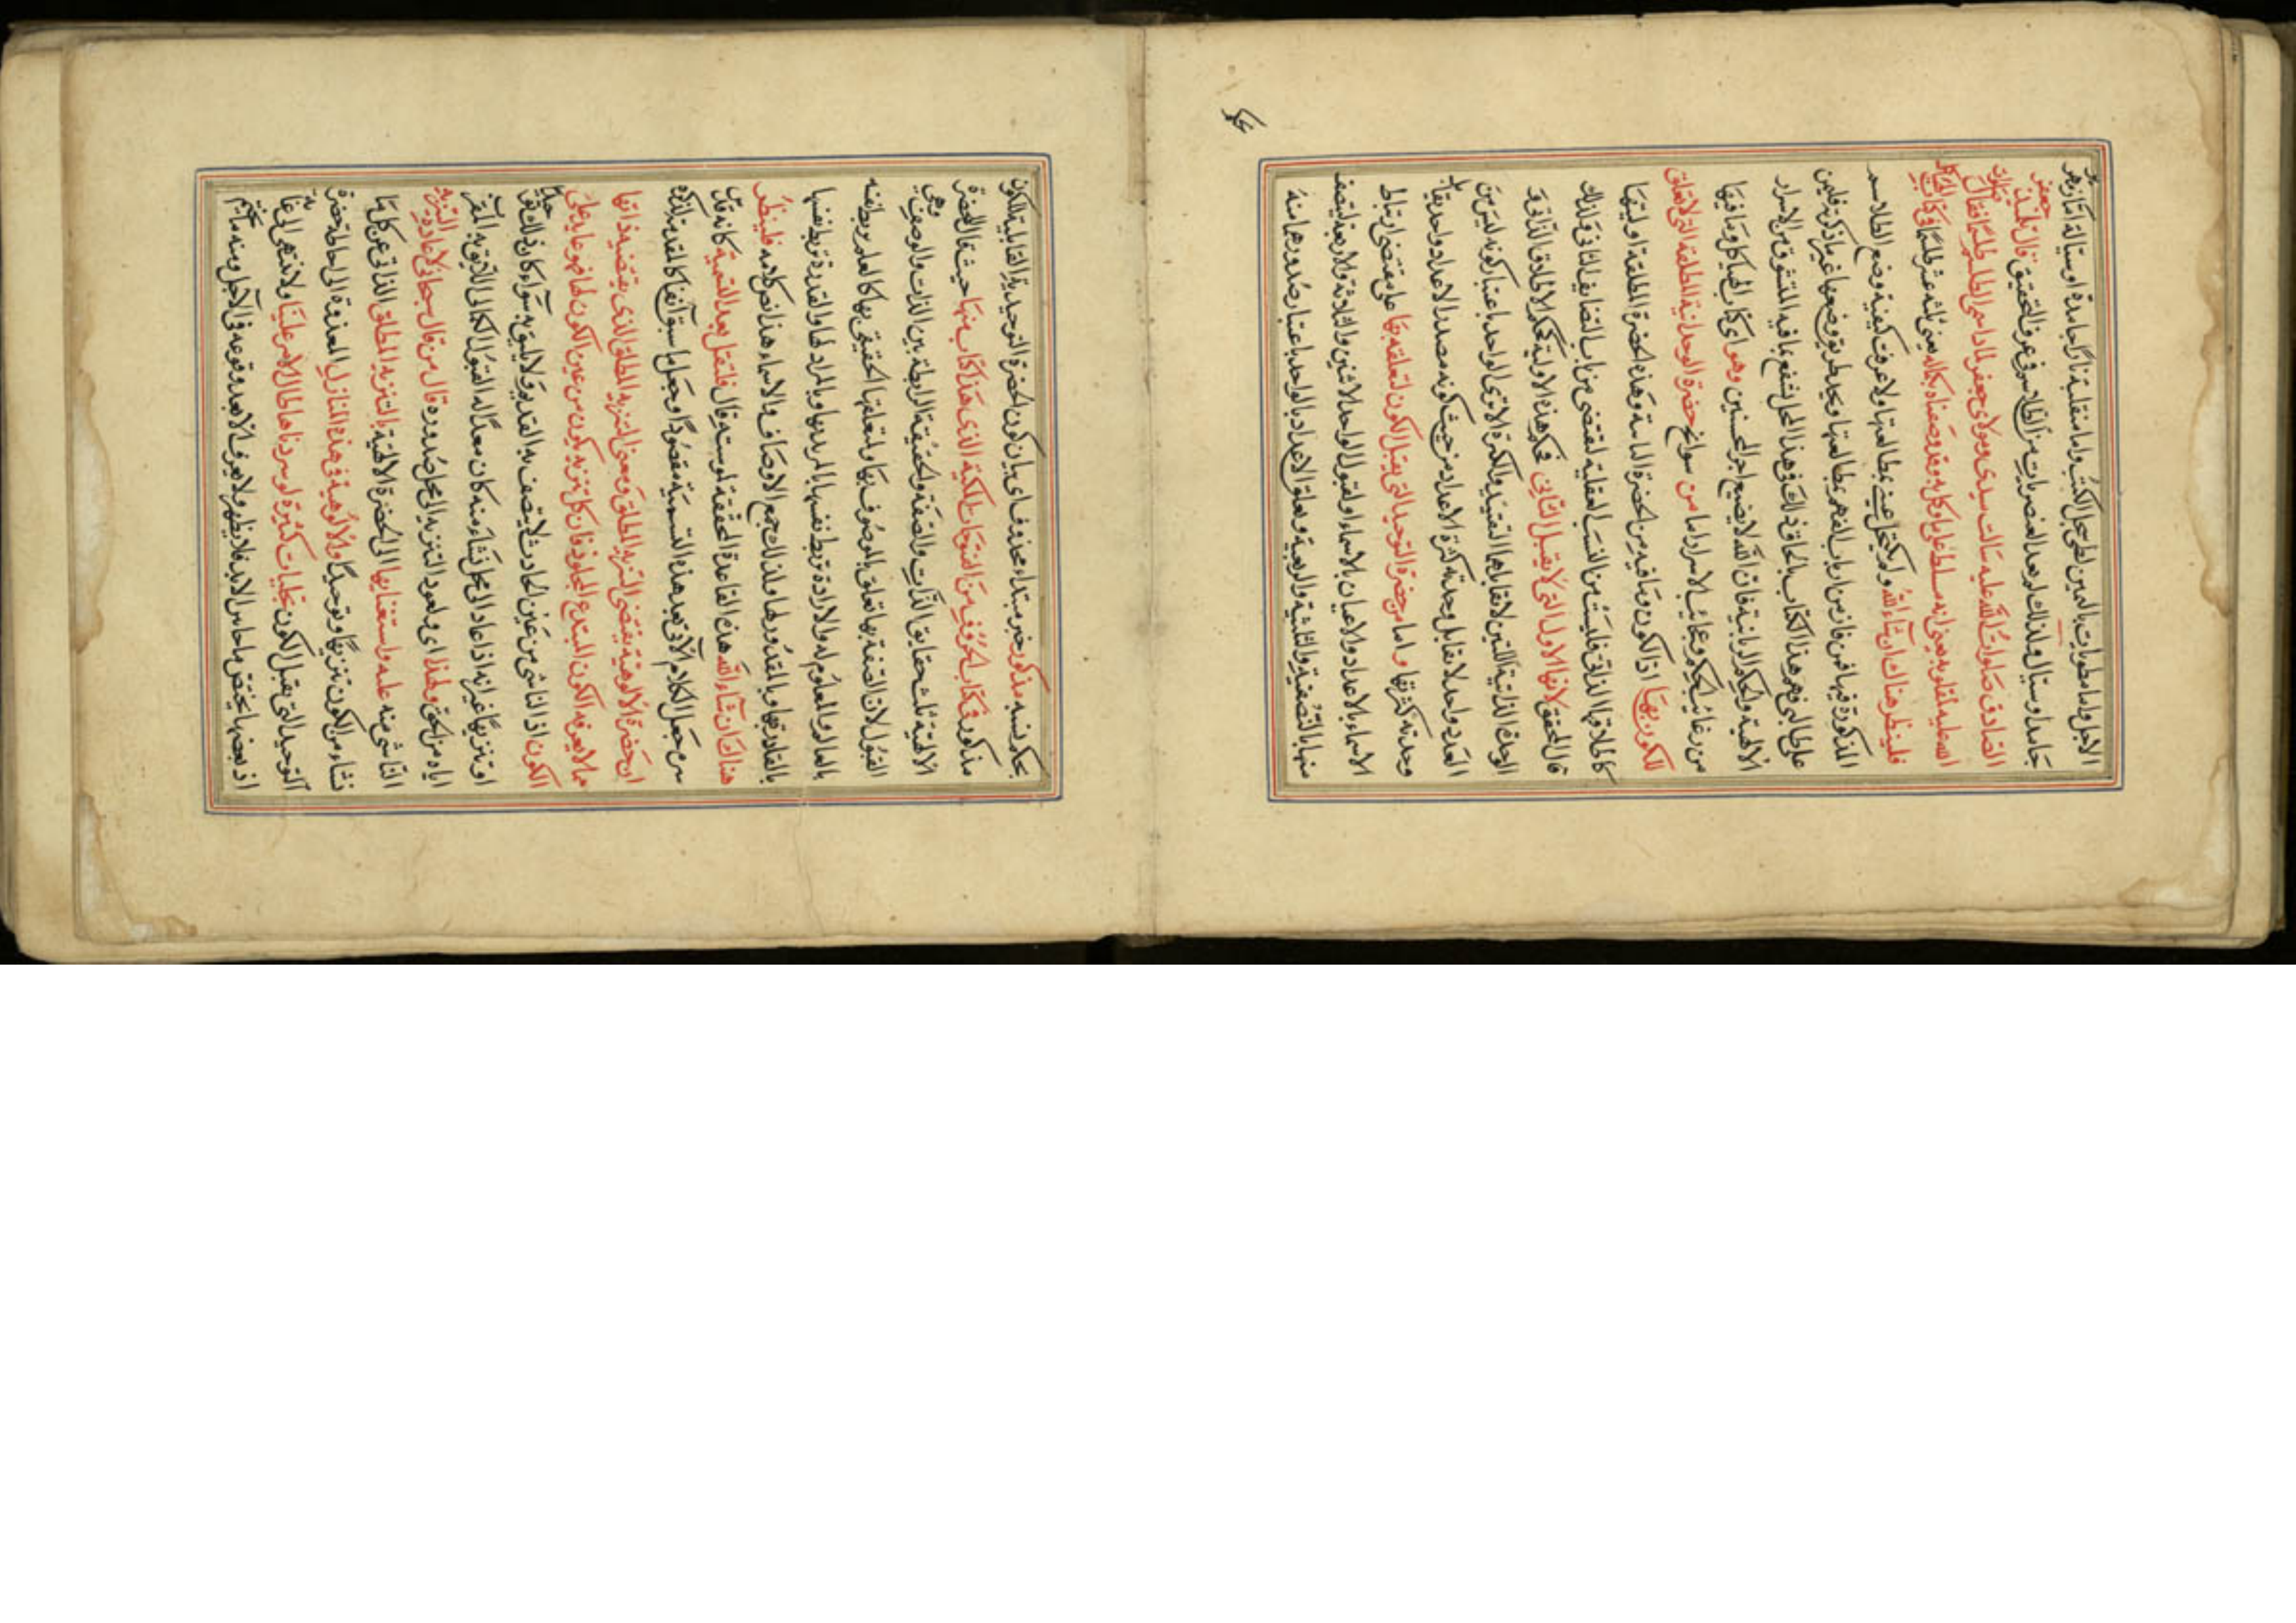 الاجل واما مطويات باليمين لطى سجل الكتب واما منقلبة نارا جامدة او سيالة اما زمهر
جامد او سيال ولذلك لم يعد العنصريات من الطلاسم في عرف التحقيق قال تلميذ جعفر
الصادق صلوات الله عليه سالت سيدى ومولاى جعفر لماذا سمى الطلسم طلسما فقال صلوات
الله عليه لمقلوبه يعنى انه مسلط على ما وكل به وقد وصفناه بكماله يعنى ثلثة عشر طلسما في كتاب الهياكل
فلينظر هناك ان شاء الله ولم يكتحل عينى بمطالعتها ولا عرفت كيفية وضع الطلاسم
المذكورة فيها فمن فاز من ارباب الفهم بمطالعتها ويجد طريق وضعها غير ما ذكرته فليمن
على طالبى فهم هذا الكتاب بالحاق ذلك في هذا المحل لينتفع بما فيه المتشوق من الاسرار
الالهية والحكم الربانية فان الله لا يضيع اجر المحسنين وهو اى كتاب الهياكل وما فيها
من رغائب الحكم وعجائب الاسرار اما من سوانح حضرة الوحدانية المطلقة التى لا تعلق
للكون بها اذ الكون وما فيه من الحضرة الماسة وهذه الحضرة المطلقة اوليتها
كاطلاقها الذاتى فليست من النسب العقلية لتقتضى من باب التضايف الثانى فلذلك
قال المحقق لانها الاول التى لا يقبل الثانى فحكم هذه الاولية حكم الاطلاق الذاتى وفى
الوحدة الذاتية اللتين لا تقابلهما التقييد والكثرة الا ترى الواحد باعتبار كونه ليس من
العدد واحد لا تقابل وحدته كثرة الاعداد من حيث كونه مصدر الاعداد واحد يقابل
وحدته كثرتها واما من حضرة التوحيد التى يقبل الكون لتعلقه بها على مقتضى ارتباط
الاسماء بالاعداد والاعيان بالاسماء او لقبول الواحد الاثنين والثلاثة والاربعة ليتصف
منها بالنصفية والثلثية والربعية وتعلق الاعداد بالواحد باعتبار صدورها منه
بحكم نسبه مذكور خبر مبتداء محذوف اى بيان كون الحضرة التوحيدية القابلية للكون
مذكور في كتاب الحروف من الفتوحات المكية الذى هذا كتاب منها حيث ثنا الحضرة
الالهية ثلث حقايق الذات والصفة والحقيقة الرابطة بين الذات والوصف وهى
القبول لان الصفة بها تعلق بالموصوف بها ولمتعلقها الحقيقى بها كالعلم يربط نفسه
بالعالم وبالمعلوم له والارادة تربط نفسها بالمريد بها وبالمراد لها والقدرة تربط نفسها
بالقادر بها وبالمقدور لها ولذلك جميع الاوصاف والاسماء هذا نص كلامه فلينظر
هناك ان شاء الله هذه القاعدة المحققة لوسته قال فلتقل بعد التسمية كانه قال
سرى جعل الكلام الآتى بعد هذه التسمية مقصودا وجعل ما سبق آنفا كالمقدمة لذكره
ان حضرة الالوهية يقتضى التنزيه المطلق ومعنى التنزيه المطلق الذى يقتضيه ذاتها
مما لا يعرفه الكون المبتدع المخلوق فان كل تنزيه يكون من عين الكون لها فهو عايد على
الكون اذ الناشى من عين الحادث لا يتصف به القديم ولا يليق به سواء كان ذلك نقص
او تنزيها غير انه اذا عاد الى محل نشاء منه كان معدا له القبول الكمال اللائق به
اياه من الحق ولهذا اى ولعود التنزيه الى محل صدوره قال من قال سبحانى لاعادة التنزيه
الناشى منه عليه واستغنايها اى الحضرة الالهية بالتنزيه المطلق الذاتى عن كل ما
نشاء من الكون تنزيها وتوحيدا وللالوهية في هذه المنازل المعدودة الى احاطة حضرة
التوحيد التى يقبل الكون تجليات كثيرة لو سردناها طال الامر علينا ولا تنتهى الى غاية
اذ بعضها يختص بما حاس الابد فلا يظهر ولا يعرف الا بعد وقوعه في الآجل ومنه ما لم